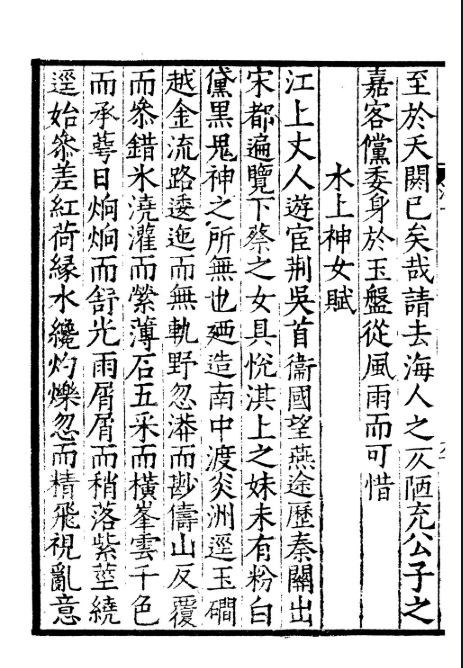 至於天闕已矣哉請去海人之仄陋充公子之
嘉客儻委身於玉盤從風雨而可惜
水上神女賦
江上丈人遊宦荆吳首衞國望燕途歷秦關出
宋都遍覽下蔡之女具悅淇上之姝未有粉白
黛黑鬼神之所無也廼造南中渡炎洲逕玉磵
越金流路逶迤而無軌野忽漭而尠儔山反覆
而叅錯水澆灌而縈薄石五采而橫峯雲千色
而承萼日烱烱而舒光雨屑屑而稍落紫莖繞
逕始叅差紅荷緣水纔灼爍忽而精飛視亂意